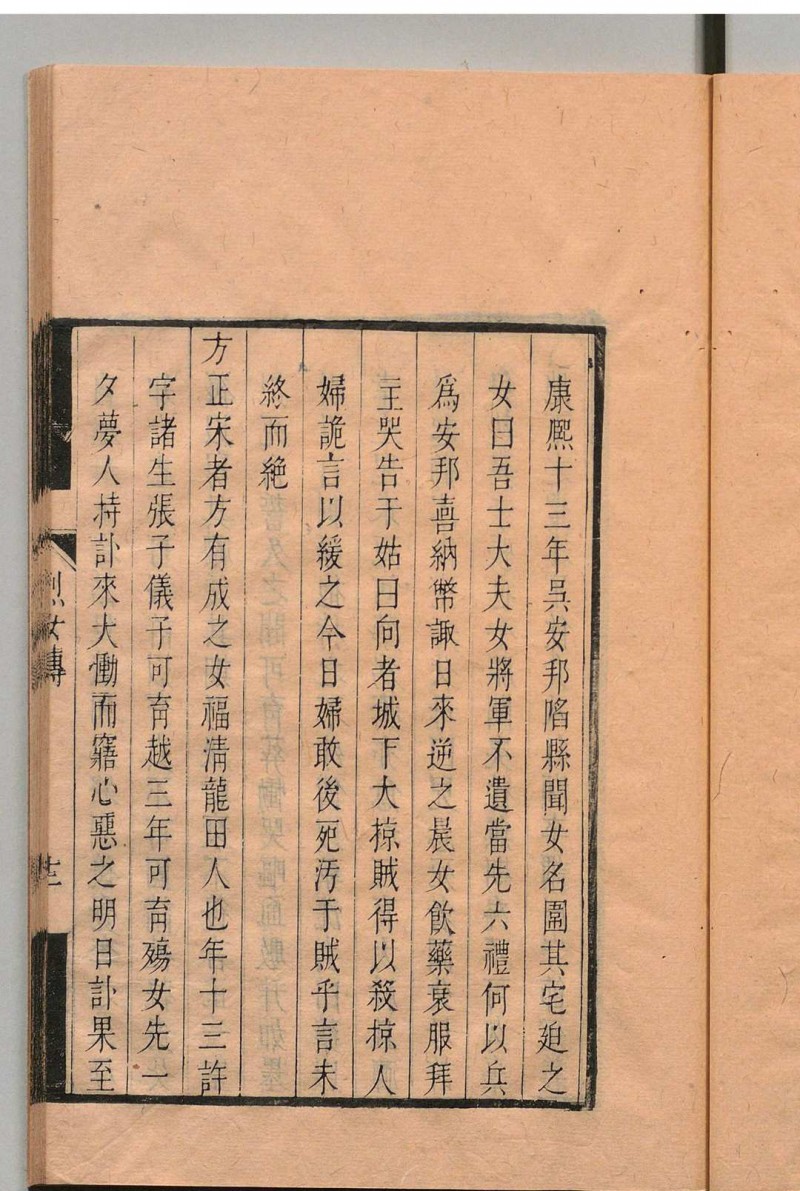 康熙十三年吳安邦陷縣聞女名圍其宅廹之
女曰吾士大夫女將軍不遺當先六禮何以兵
爲安邦喜納幣諏日來逆之晨女飲藥衰服拜
主哭告于姑曰向者城下大掠賊得以殺掠人
婦詭言以緩之今日婦敢後死汚于賊乎言未
終而絶
方正宋者方有成之女福淸龍田人也年十三許
字諸生張子儀子可育越三年可育殤女先一
夕夢人持訃來大慟而寤心惡之明日訃果至
列女傳